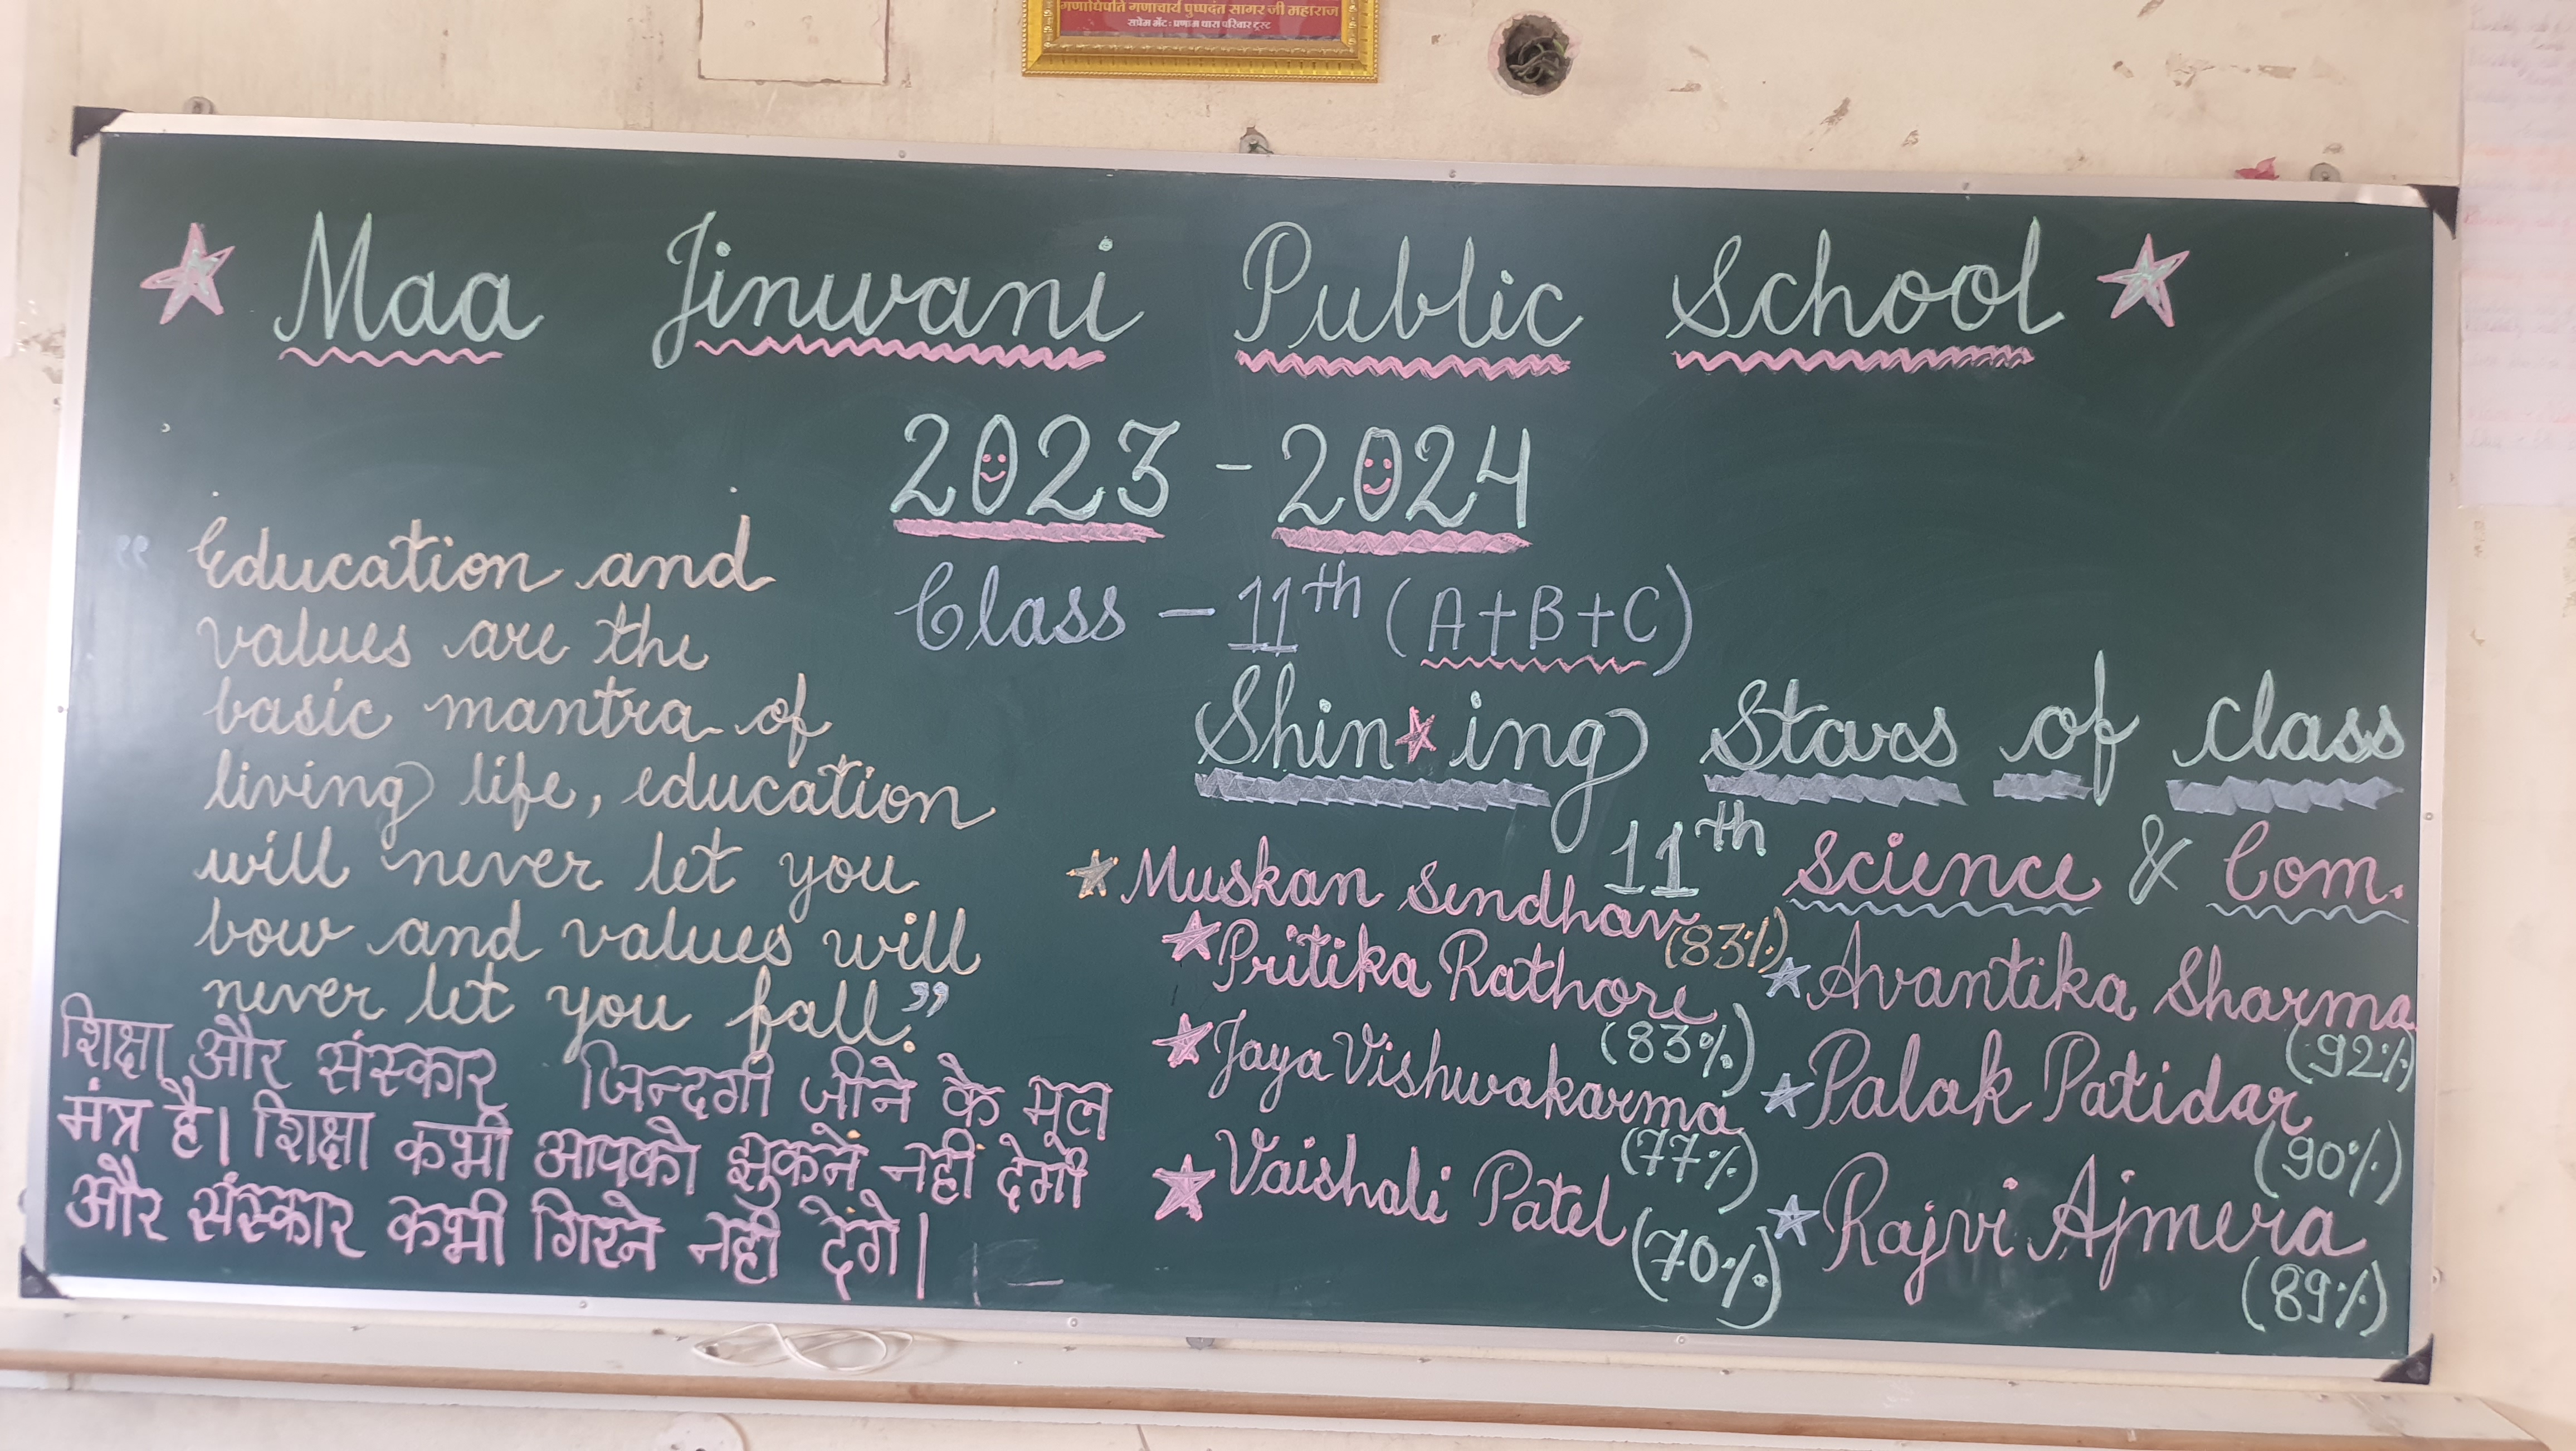 गणाधिपति गणाचार्य पुष्पदंत सागर जी महाराज
सप्रेम भेंट: प्रणाम धारा परिवार ट्रस्ट
Maa Jinwani Public School
2023 - 2024
Class - 11th (A+B+C)
“ Education and
values are the
basic mantra of
living life, education
will never let you
bow and values will
never let you fall.”
शिक्षा और संस्कार जिन्दगी जीने के मूल
मंत्र है। शिक्षा कभी आपको झुकने नहीं देगी
और संस्कार कभी गिरने नहीं देंगे।
Shining Stars of class
11th Science & Com.
Muskan Sendhav (83%)
Pritika Rathore (83%)
Jaya Vishwakarma (77%)
Vaishali Patel (70%)
Avantika Sharma (92%)
Palak Patidar (90%)
Rajvi Ajmera (89%)